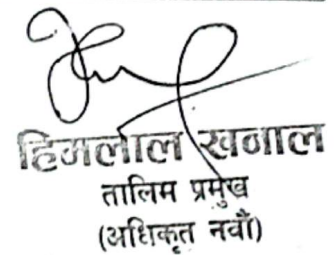 हिमलाल खनाल
तालिम प्रमुख
(अधिकृत नवौं)